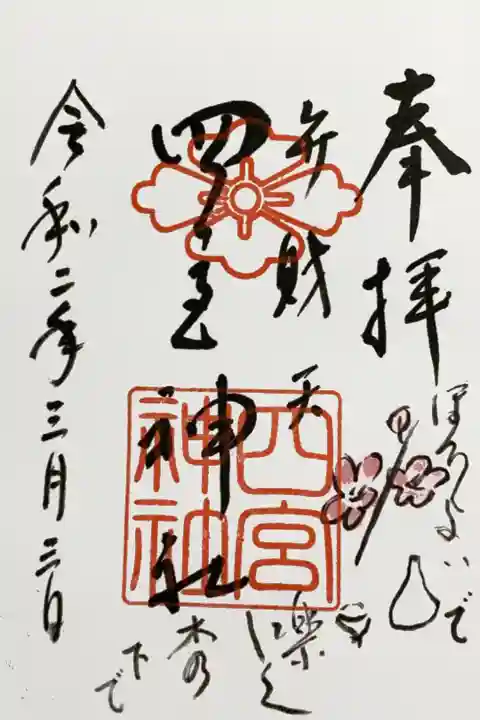 奉拝
ほろよいで
弁財天
楽しく
四宮
神社
四宮
神社
木の
下で
令和二年三月三日